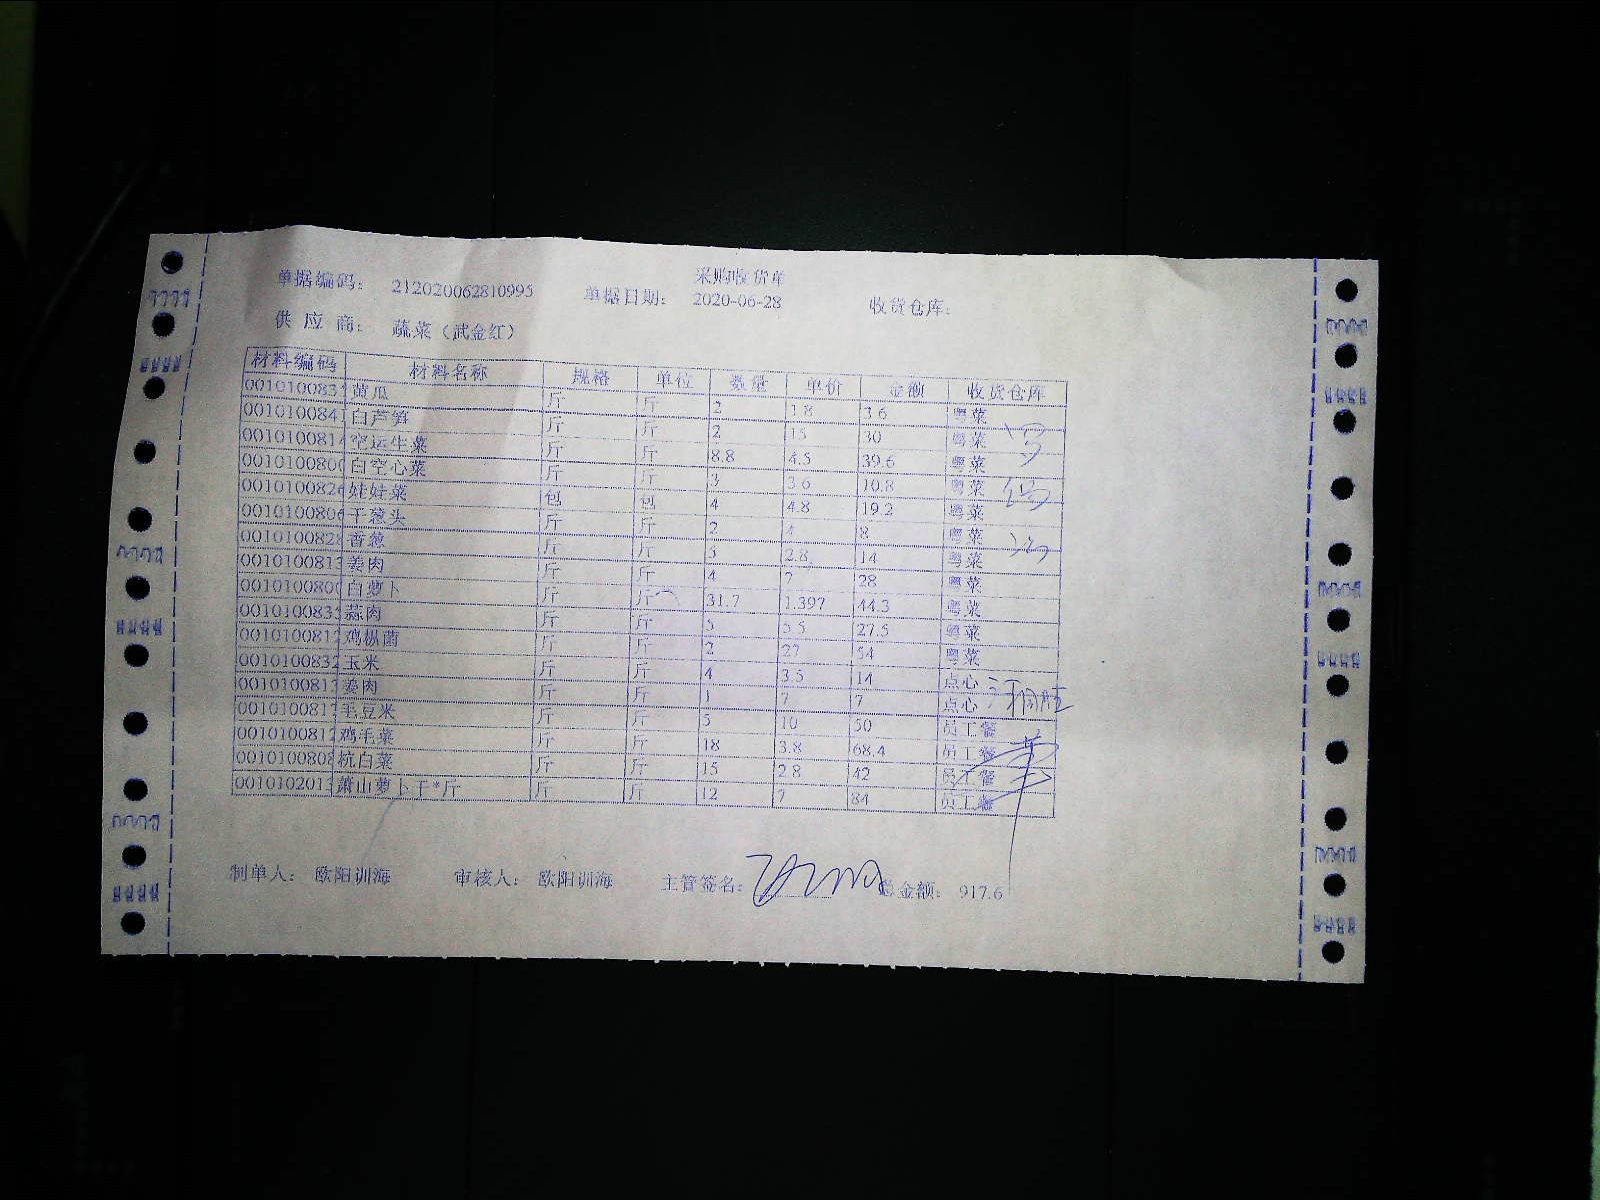 采购收货单
单据编码： 212020062810995 单据日期： 2020-06-28 收货仓库：
供 应 商： 蔬菜（武金红）
材料编码 材料名称 规格 单位 数量 单价 金额 收货仓库
001010083 黄瓜 斤 斤 2 1.8 3.6 粤菜
001010084 白芦笋 斤 斤 2 15 30 粤菜
001010081 空运生菜 斤 斤 8.8 4.5 39.6 粤菜
001010080 白空心菜 斤 斤 3 3.6 10.8 粤菜
001010082 娃娃菜 包 包 4 4.8 19.2 粤菜
001010080 干葱头 斤 斤 2 4 8 粤菜
001010082 香葱 斤 斤 5 2.8 14 粤菜
001010081 姜肉 斤 斤 4 7 28 粤菜
001010080 白萝卜 斤 斤 31.7 1.397 44.3 粤菜
001010083 蒜肉 斤 斤 5 5.5 27.5 粤菜
001010081 鸡枞菌 斤 斤 2 27 54 粤菜
001010083 玉米 斤 斤 4 3.5 14 点心
001010081 姜肉 斤 斤 1 7 7 点心
001010081 毛豆米 斤 斤 5 10 50 员工餐
001010081 鸡毛菜 斤 斤 18 3.8 68.4 员工餐
001010080 杭白菜 斤 斤 15 2.8 42 员工餐
001010201 萧山萝卜干*斤 斤 斤 12 7 84 员工餐
制单人： 欧阳训海 审核人： 欧阳训海 主管签名： 总金额： 917.6